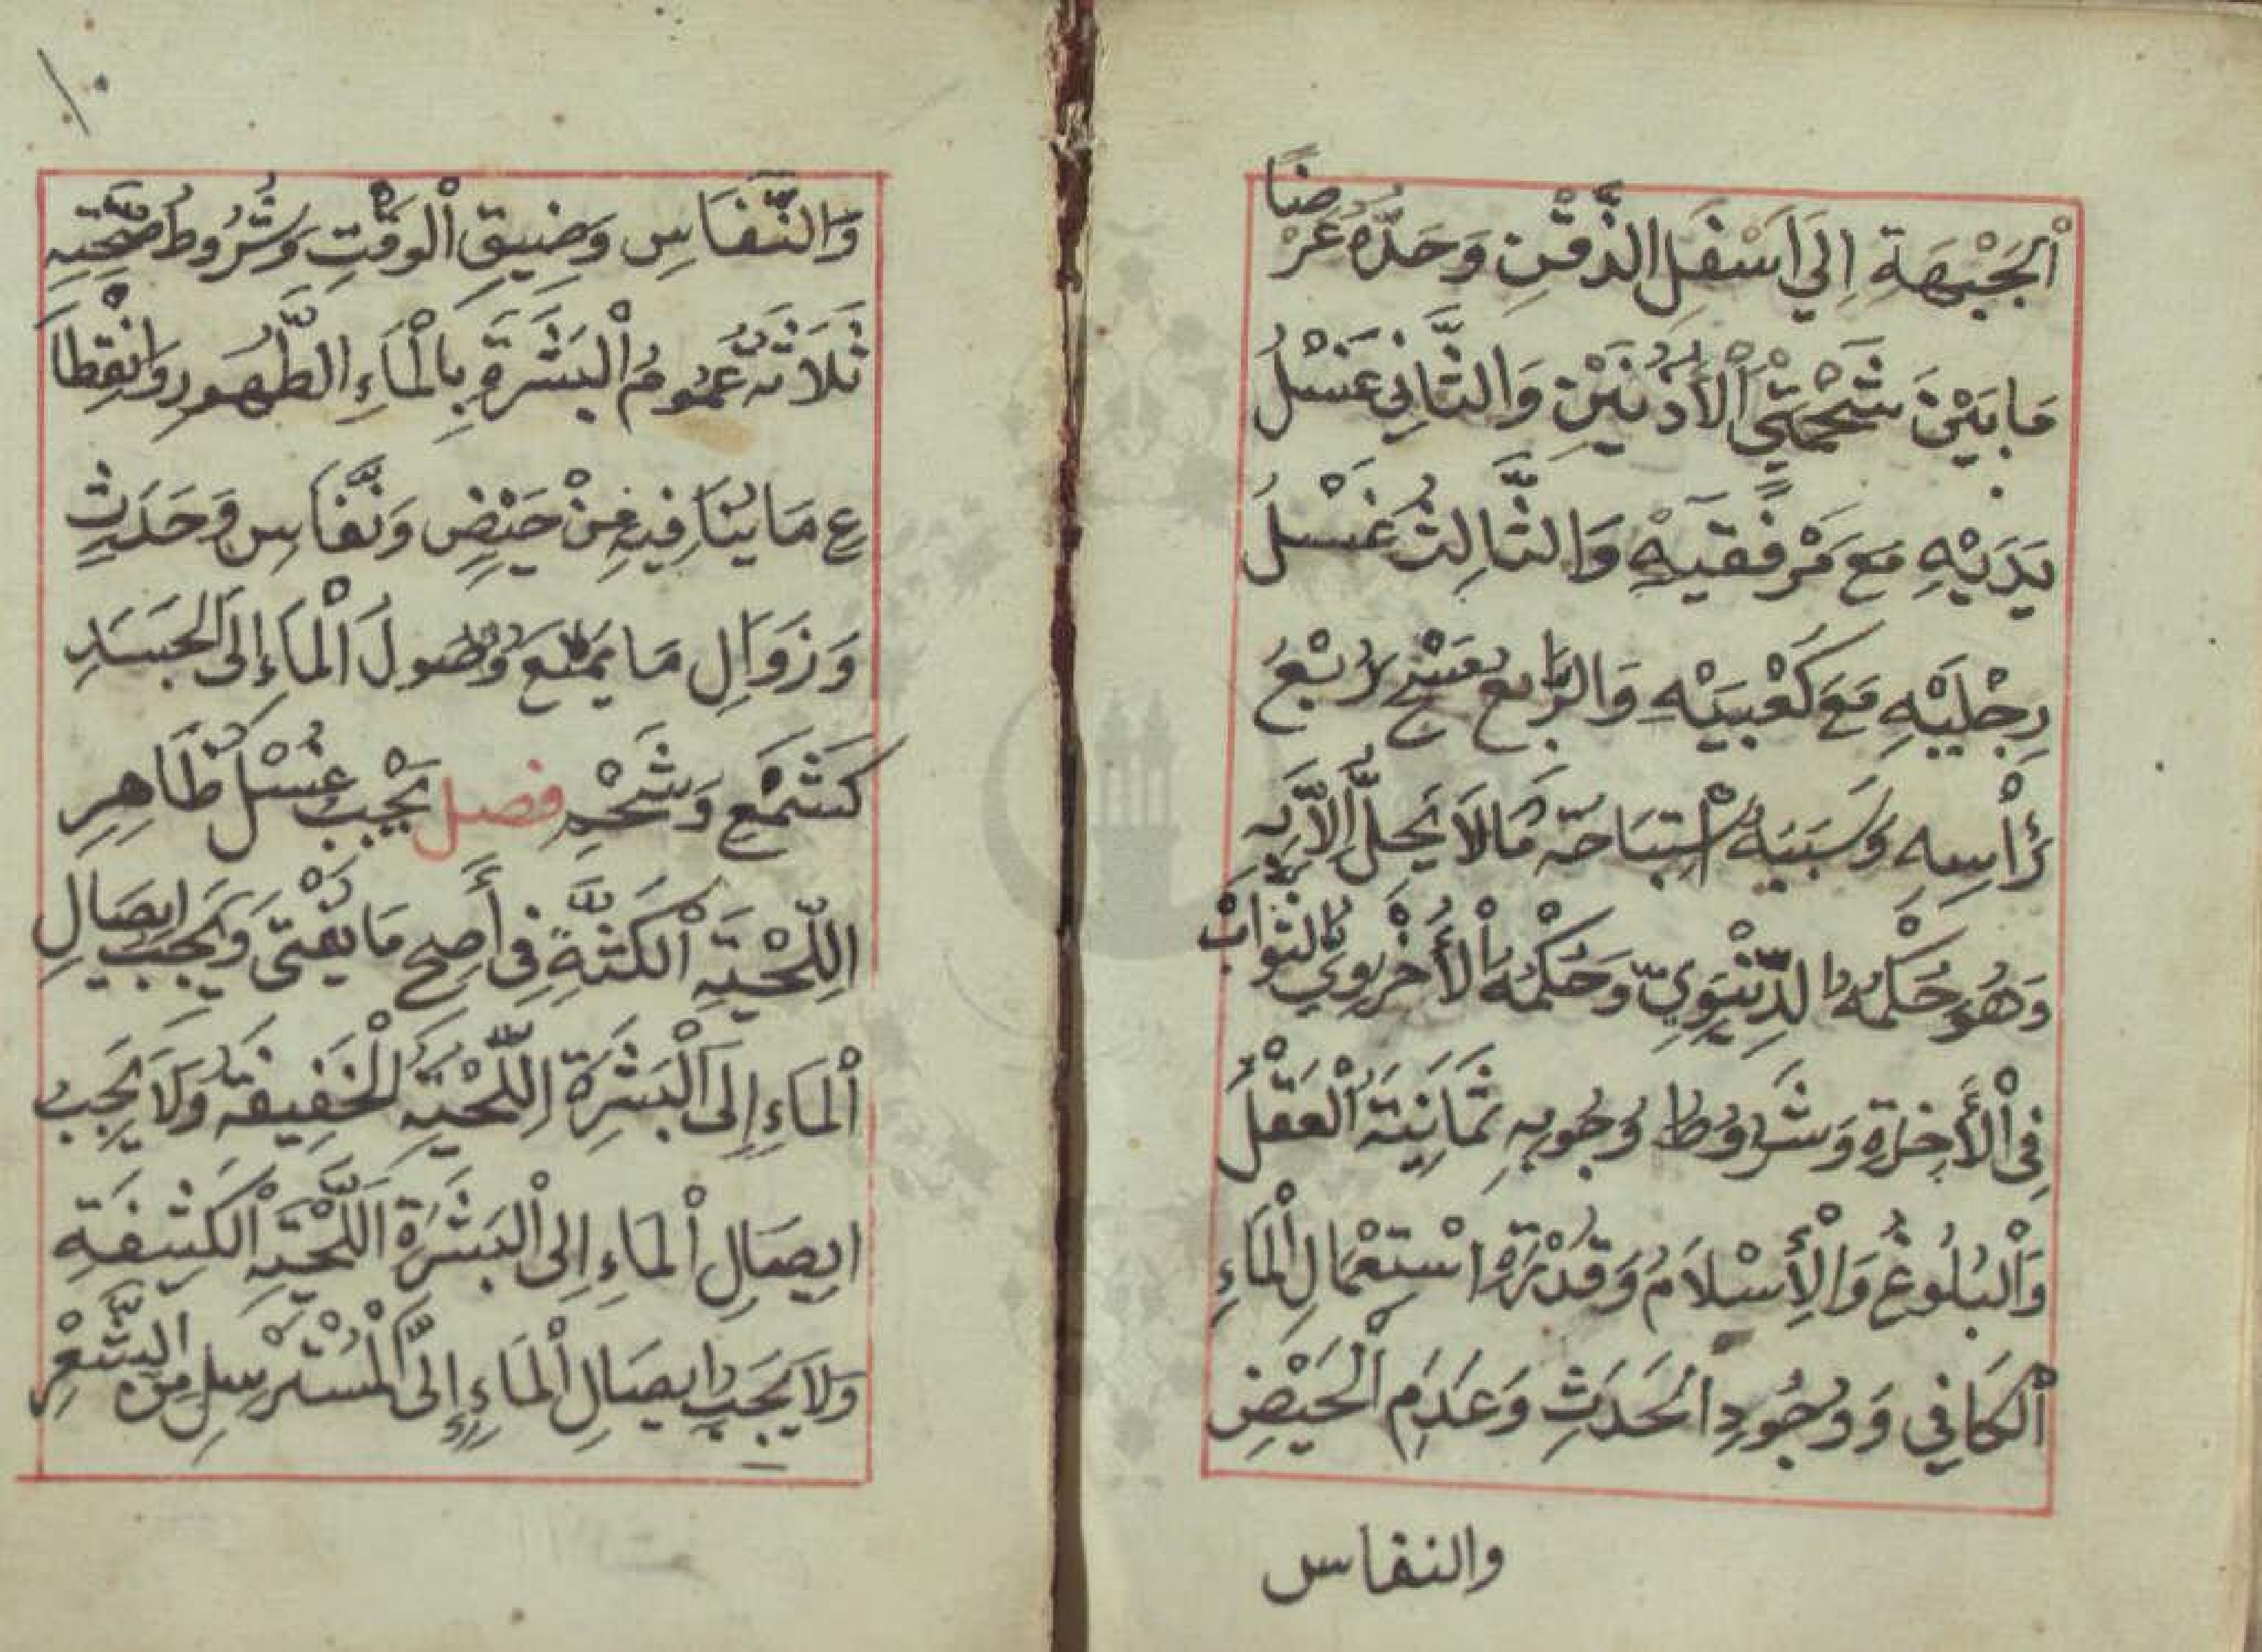 اَلْجَبْهَةِ اِلَي اَسْفَلِ الذَّقْنِ وَحَدُّهُ عَرْضًا
مَا بَيْنَ شَحْمَتَيِ الْأُذُنَيْنِ وَالثَّانِي غَسْلُ
يَدَيْهِ مَعَ مَرْفَقَيْهِ وَالثَّالِثُ غَسْلُ
رِجْلَيْهِ مَعَ كَعْبَيْهِ وَالرَّابِعُ مَسْحُ رُبْعِ
رَأْسِهِ وَسَبَبُهُ اسْتِبَاحَةُ مَالَا يَحِلُّ اِلَّا بِهِ
وَهُوَ حُكْمُهُ الدِّنْيَوِيِّ وَحُكْمُهُ الْأُخْرَوِيُّ الثَّوَابُ
فِى الْأَخِرَةِ وَشَرُوطُ وُجُوبِهِ ثَمَانِيَةٌ اَلْعَقْلُ
وَالْبُلُوغُ وَالْأِسْلَامُ وَقُدْرَةُ اسْتِعْمَالِ الْمَاءِ
اَلْكَافِي وَوُجُودِ الْحَدَثِ وَعَدَمِ الْحَيْضِ
والنفاس
١٠
وَالنِّفَاسِ وَضِيقِ الْوَقْتِ وَشُرُوطُ صِحَّتِهِ
ثَلَاثَةٌ عُمُومُ الْبَشَرَةِ بِالْمَاءِ الطَّهُورِ وَانْقِطَا
عِ مَا يُنَافِيهِ مِنْ حَيْضٍ وَنِّفَاسٍ وَحَدَثٍ
وَزَوَالِ مَا يَمْنَعُ وُصُولَ الْمَاءِ اِلَى الْجَسَدِ
كَشَمْعٍ وَشَحْمٍ فصل يَجِبُ غُسْلُ ظَاهِرِ
اللِّحْيَةِ الْكَثَّةِ فِى أَصَحِّ مَا يُفْتَى وَيَجِبُ اِيصَالِ
اَلْمَاءِ اِلَى الْبَشَرَةِ اللِّحْيَةِ الْخَفِيفَةِ وَلَا يَجِبُ
اِيصَالِ الْمَاءِ اِلَى الْبَشَرَةِ اللِّحْيَةِ الْكَشِفَةِ
وَلَا يَجِبُ اِيصَالِ الْمَاءِ اِلَى الْمُسْتَرْسِلِ مِنَ الشَّعْرِ